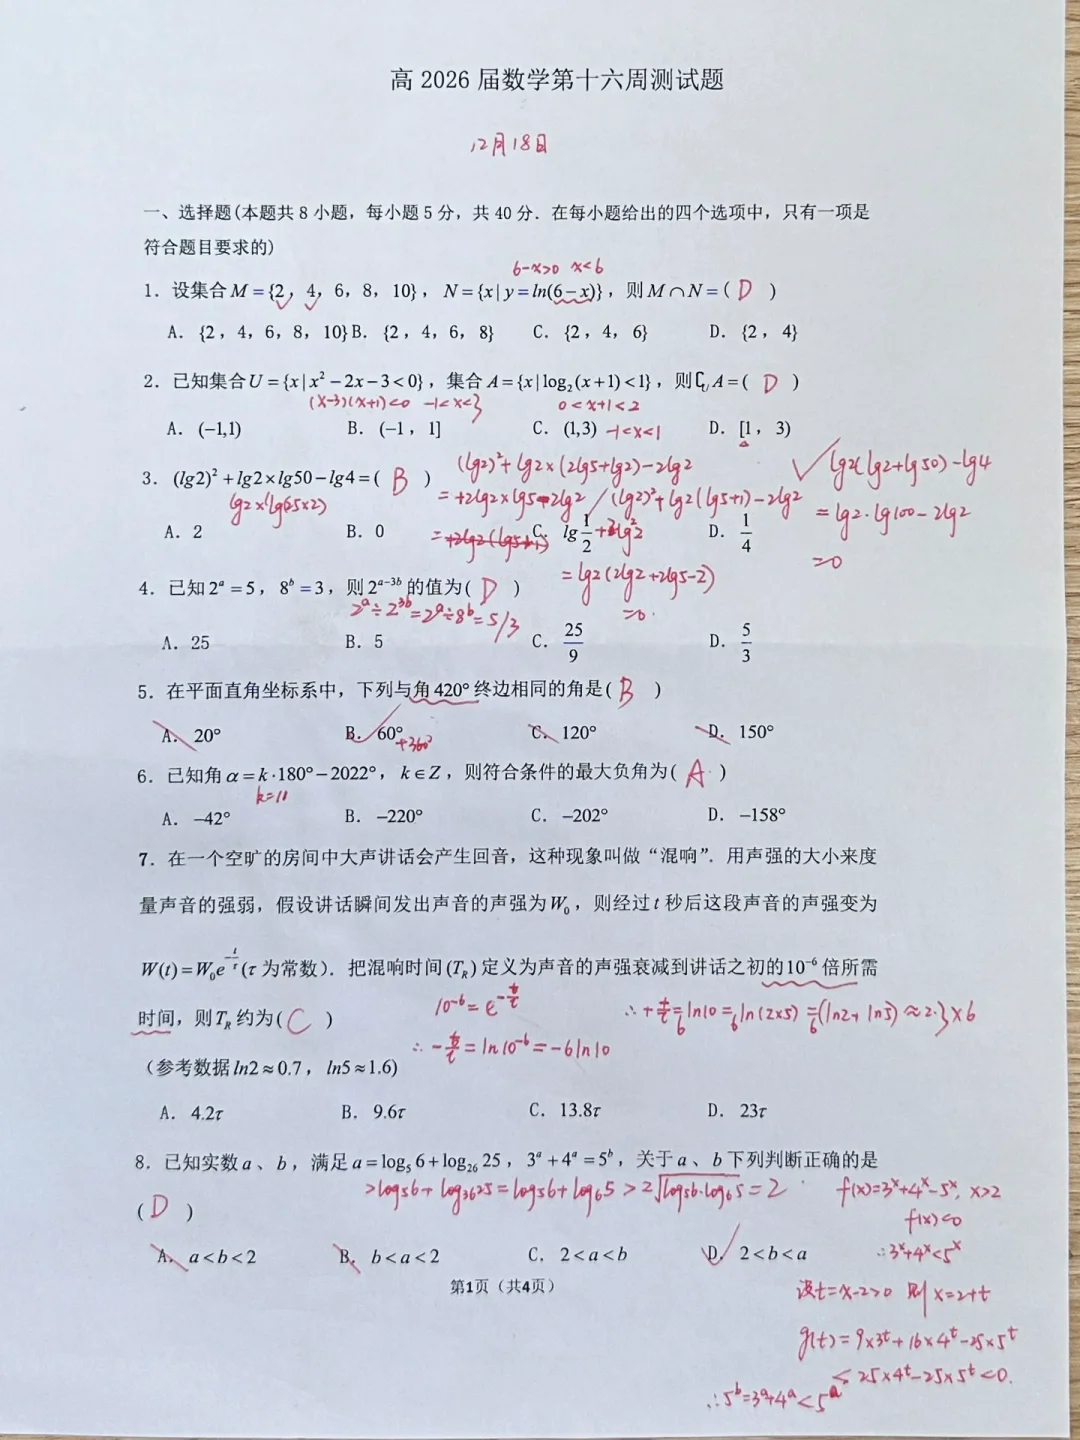 高 2026 届数学第十六周测试题
12月18日
一、选择题(本题共 8 小题，每小题 5 分，共 40 分．在每小题给出的四个选项中，只有一项是
符合题目要求的)
6-x>0 x<6
1．设集合 M={2，4，6，8，10}，N={x|y=ln(6-x)}，则 M∩N=( D )
A．{2，4，6，8，10} B．{2，4，6，8} C．{2，4，6} D．{2，4}
2．已知集合 U={x|x²-2x-3<0}，集合 A={x|log₂(x+1)<1}，则∁ᵤA=( D )
(x-3)(x+1)<0 -1<x<3 0<x+1<2
A．(-1,1) B．(-1，1] C．(1,3) -1<x<1 D．[1，3)
(lg2)²+lg2×(2lg5+lg2)-2lg2 √ lg2(lg2+lg50)-lg4
3．(lg2)²+lg2×lg50-lg4=( B )
=+2lg2×lg5-2lg2 (lg2)²+lg2(lg5+1)-2lg2 =lg2·lg100-2lg2
A．2 B．0 C．lg 1/2 D．1/4
=0
=lg2(2lg2+2lg5-2)
4．已知 2ᵃ=5，8ᵇ=3，则 2ᵃ⁻³ᵇ 的值为( D )
2ᵃ÷2³ᵇ=2ᵃ÷8ᵇ=5/3 =0.
A．25 B．5 C．25/9 D．5/3
5．在平面直角坐标系中，下列与角 420° 终边相同的角是( B )
A．20° B．60° +360° C．120° D．150°
6．已知角 α=k·180°-2022°，k∈Z，则符合条件的最大负角为( A )
k=11
A．-42° B．-220° C．-202° D．-158°
7．在一个空旷的房间中大声讲话会产生回音，这种现象叫做“混响”．用声强的大小来度
量声音的强弱，假设讲话瞬间发出声音的声强为 W₀，则经过 t 秒后这段声音的声强变为
W(t)=W₀e^(-t/τ) (τ 为常数)．把混响时间 (T_R) 定义为声音的声强衰减到讲话之初的 10⁻⁶ 倍所需
10⁻⁶=e^(-t/τ) ∴+t/τ=6ln10=6ln(2×5)=6(ln2+ln5)≈2.3×6
时间，则 T_R 约为( C )
∴-t/τ=ln10⁻⁶=-6ln10
（参考数据 ln2≈0.7，ln5≈1.6)
A．4.2τ B．9.6τ C．13.8τ D．23τ
8．已知实数 a、b，满足 a=log₅6+log₂₆25，3ᵃ+4ᵃ=5ᵇ，关于 a、b 下列判断正确的是
>log₅6+log₃₆25=log₅6+log₆5>2√(log₅6·log₆5)=2 f(x)=3ˣ+4ˣ-5ˣ, x>2
( D )
f(x)<0
A．a<b<2 B．b<a<2 C．2<a<b D．2<b<a
∴3ˣ+4ˣ<5ˣ
第1页（共4页）
设t=x-2>0 则x=2+t
g(t)=9×3ᵗ+16×4ᵗ-25×5ᵗ
<25×4ᵗ-25×5ᵗ<0.
∴5ᵇ=3ᵃ+4ᵃ<5ᵃ